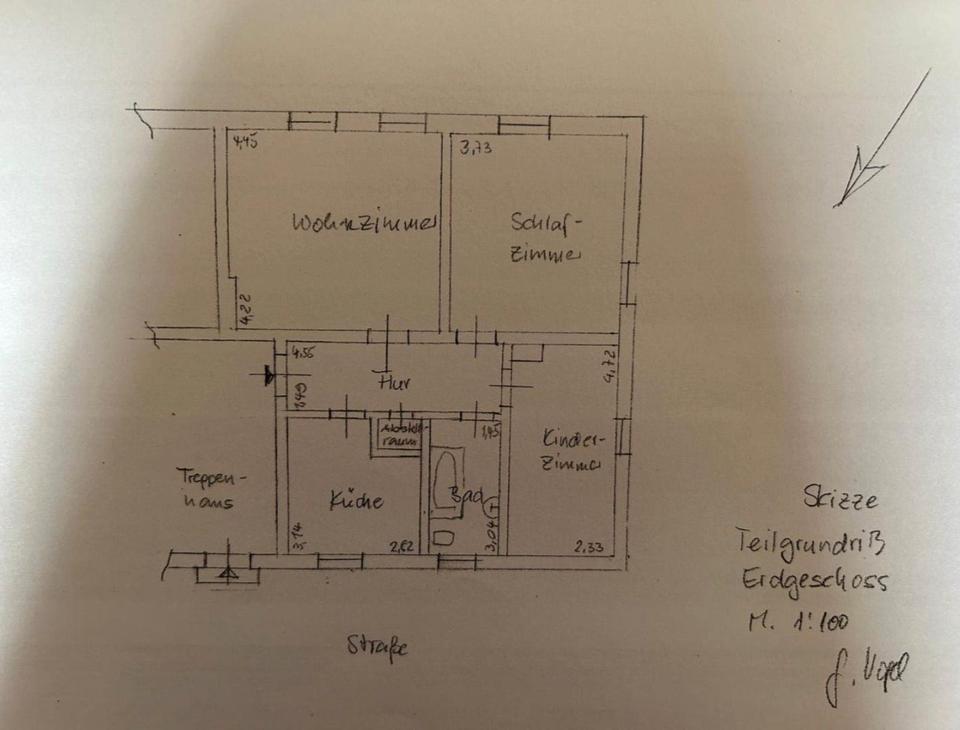 4,45
3,73
Wohnzimmer
Schlaf-
Zimmer
4,22
4,55
1,49
Flur
4,72
Abstell-
raum
1,45
Kinder-
Zimmer
Treppen-
haus
Küche
Bad
3,14
2,62
3,04
2,33
Straße
Skizze
Teilgrundriß
Erdgeschoss
M. 1:100